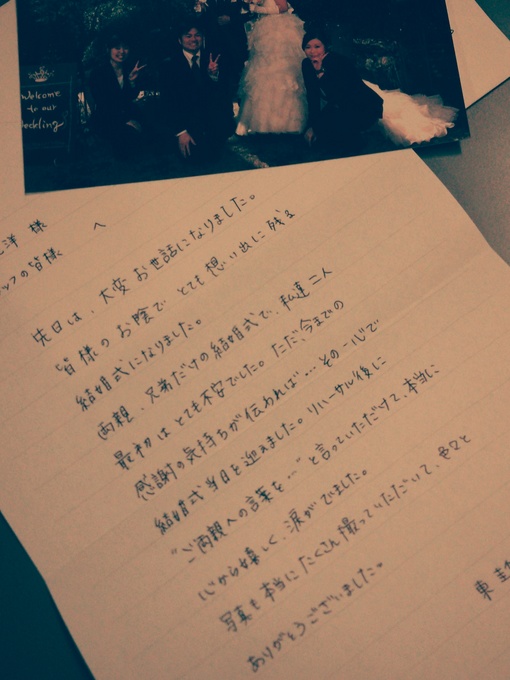 Welcome
to our
wedding
洋 様
ッフの皆様 へ
先日は、大変お世話になりました。
皆様のお陰でとても想い出に残る
結婚式になりました。
両親、兄弟だけの結婚式で、私達二人
最初はとても不安でした。ただ、今までの
感謝の気持ちが伝われば…その一心で
結婚式当日を迎えました。リハーサル後に
"ご両親への言葉を…"と言っていただけて、本当に
心から嬉しく、涙がでました。
写真も本当にたくさん撮っていただいて、色々と
ありがとうございました。
東